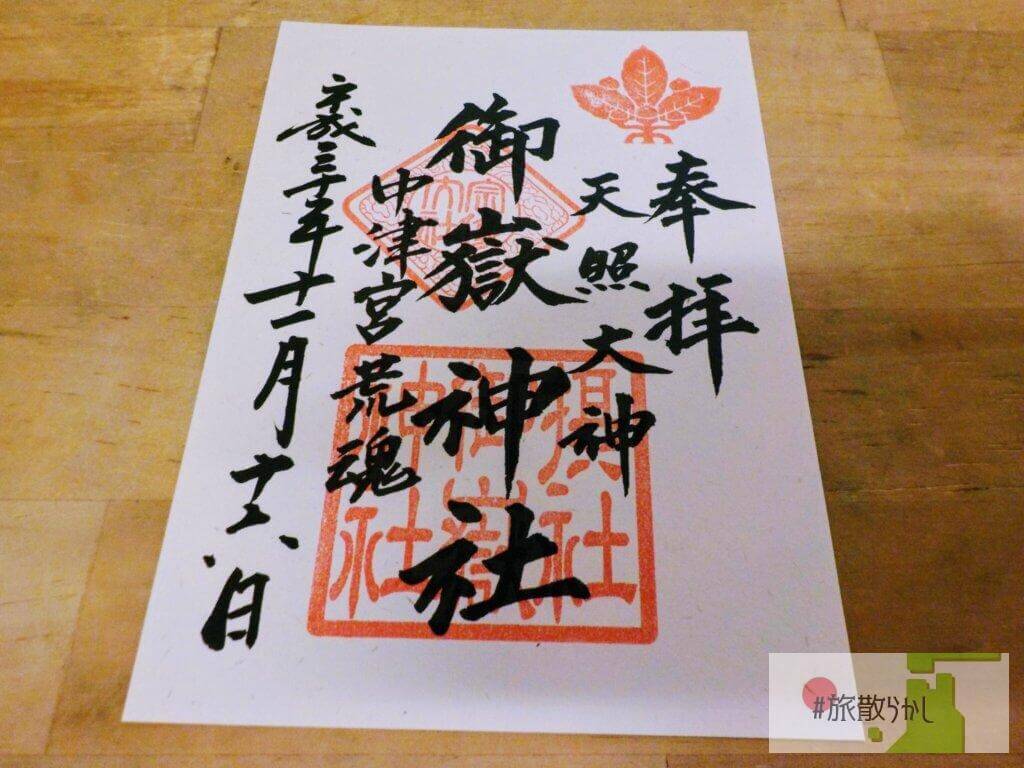 奉拝
天照大神
御嶽神社
中津宮荒魂
平成三十年十一月十六日
摂社
御嶽
神社
#旅散らかし